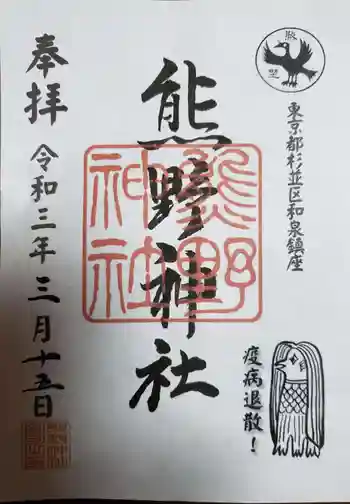 熊野
東京都杉並区和泉鎮座
熊野神社
熊野
神社
奉拝
令和三年三月十五日
疫病退散！